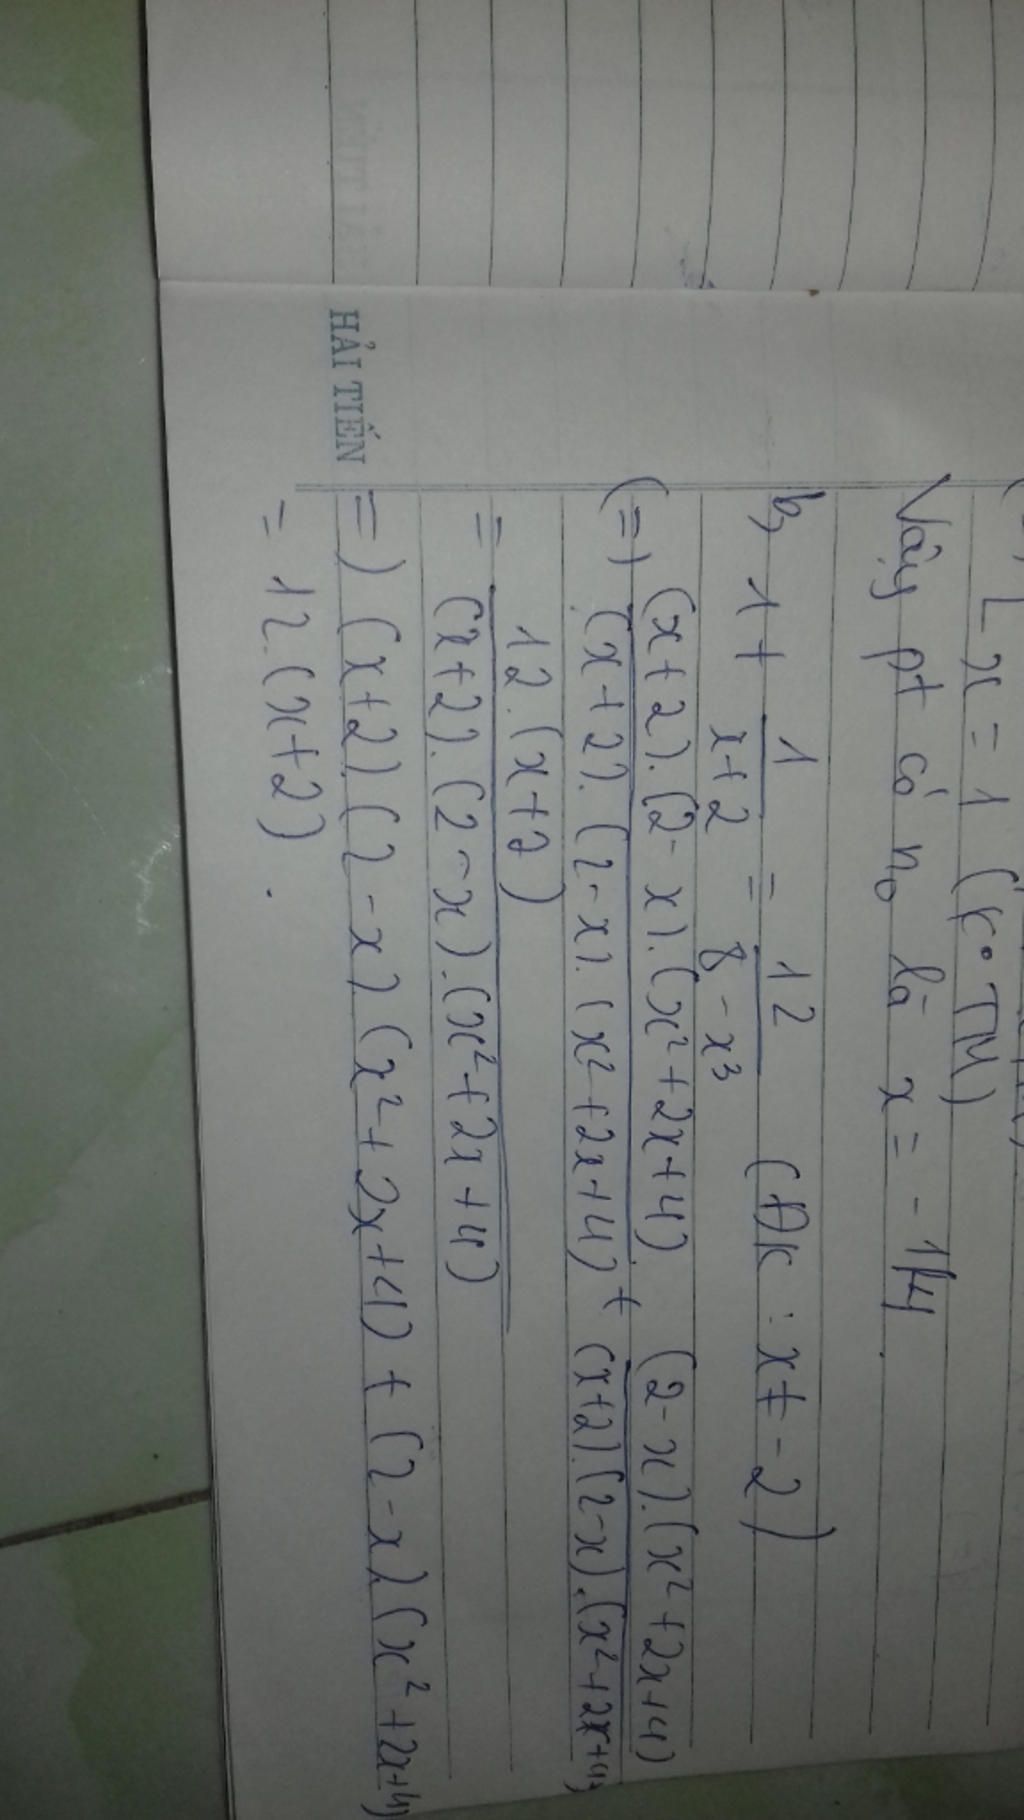 x = 1 (K° TM)
Vậy pt có n₀ là x = -14
b, 1 + 1/(x+2) = 12/(8 - x³) (ĐK : x ≠ -2)
(=) (x+2).(2-x).(x²+2x+4)/(x+2).(2-x).(x²+2x+4) + (2-x).(x²+2x+4)/(x+2).(2-x).(x²+2x+4)
= 12.(x+2)/(x+2).(2-x).(x²+2x+4)
HẢI TIẾN
=) (x+2).(2-x).(x²+2x+4) + (2-x).(x²+2x+4)
= 12.(x+2).